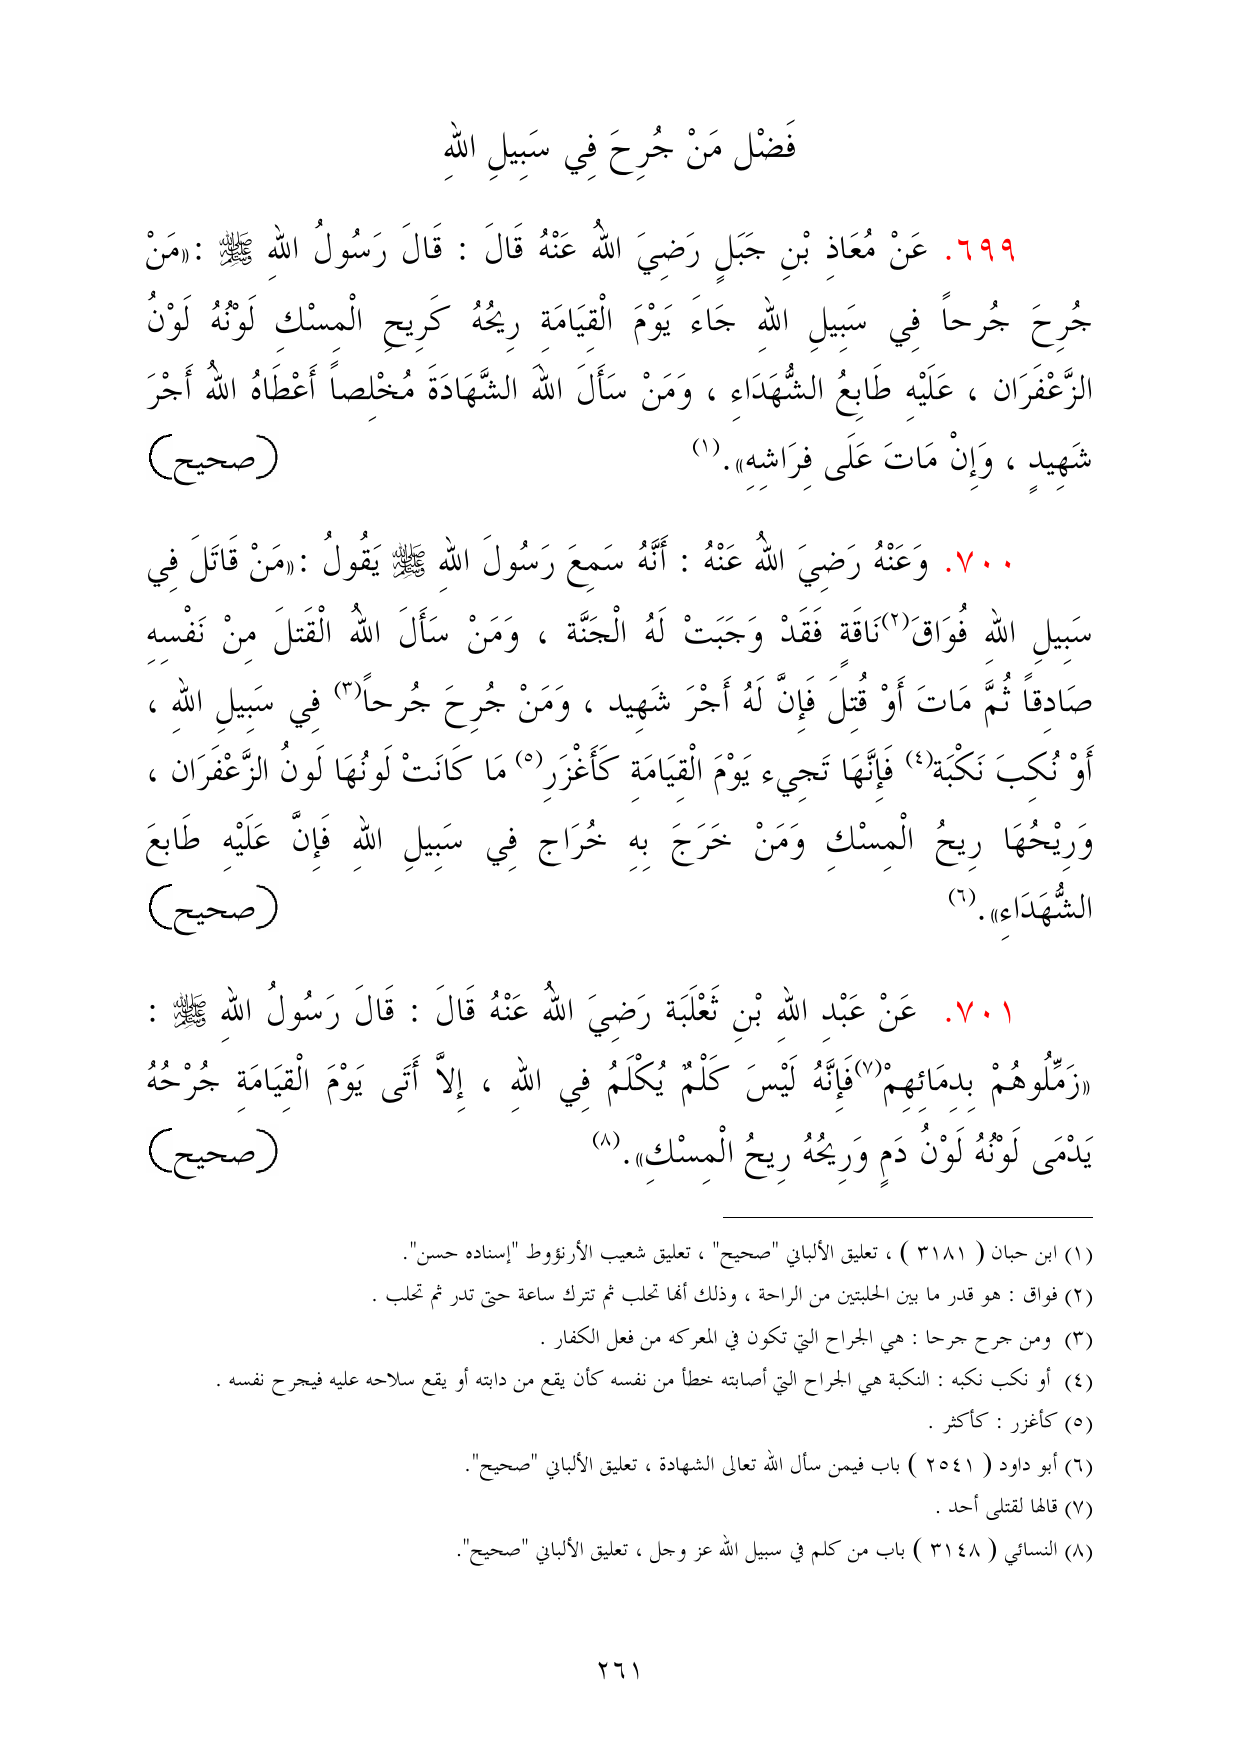 فَضْل مَنْ جُرِحَ فِي سَبِيلِ اللهِ
٦٩٩. عَنْ مُعَاذِ بْنِ جَبَلٍ رَضِيَ اللهُ عَنْهُ قَالَ : قَالَ رَسُولُ اللهِ ﷺ :«مَنْ
جُرِحَ جُرحاً فِي سَبِيلِ اللهِ جَاءَ يَوْمَ الْقِيَامَةِ رِيحُهُ كَرِيحِ الْمِسْكِ لَوْنُهُ لَوْنُ
الزَّعْفَرَان ، عَلَيْهِ طَابِعُ الشُّهَدَاءِ ، وَمَنْ سَأَلَ اللهَ الشَّهَادَةَ مُخْلِصاً أَعْطَاهُ اللهُ أَجْرَ
شَهِيدٍ ، وَإِنْ مَاتَ عَلَى فِرَاشِهِ».(١) (صحيح)
٧٠٠. وَعَنْهُ رَضِيَ اللهُ عَنْهُ : أَنَّهُ سَمِعَ رَسُولَ اللهِ ﷺ يَقُولُ :«مَنْ قَاتَلَ فِي
سَبِيلِ اللهِ فُوَاقَ(٢)نَاقَةٍ فَقَدْ وَجَبَتْ لَهُ الْجَنَّة ، وَمَنْ سَأَلَ اللهُ الْقَتلَ مِنْ نَفْسِهِ
صَادِقاً ثُمَّ مَاتَ أَوْ قُتِلَ فَإِنَّ لَهُ أَجْرَ شَهِيد ، وَمَنْ جُرِحَ جُرحاً(٣) فِي سَبِيلِ اللهِ ،
أَوْ نُكِبَ نَكْبَة(٤) فَإِنَّهَا تَجِيء يَوْمَ الْقِيَامَةِ كَأَغْزَرِ(٥) مَا كَانَتْ لَونُهَا لَونُ الزَّعْفَرَان ،
وَرِيْحُهَا رِيحُ الْمِسْكِ وَمَنْ خَرَجَ بِهِ خُرَاج فِي سَبِيلِ اللهِ فَإِنَّ عَلَيْهِ طَابعَ
الشُّهَدَاءِ».(٦) (صحيح)
٧٠١. عَنْ عَبْدِ اللهِ بْنِ ثَعْلَبَة رَضِيَ اللهُ عَنْهُ قَالَ : قَالَ رَسُولُ اللهِ ﷺ :
«زَمِّلُوهُمْ بِدِمَائِهِمْ(٧)فَإِنَّهُ لَيْسَ كَلْمٌ يُكْلَمُ فِي اللهِ ، إِلاَّ أَتَى يَوْمَ الْقِيَامَةِ جُرْحُهُ
يَدْمَى لَوْنُهُ لَوْنُ دَمٍ وَرِيحُهُ رِيحُ الْمِسْكِ».(٨) (صحيح)
(١) ابن حبان ( ٣١٨١ ) ، تعليق الألباني "صحيح" ، تعليق شعيب الأرنؤوط "إسناده حسن".
(٢) فواق : هو قدر ما بين الحلبتين من الراحة ، وذلك أنها تحلب ثم تترك ساعة حتى تدر ثم تحلب .
(٣) ومن جرح جرحا : هي الجراح التي تكون في المعركه من فعل الكفار .
(٤) أو نكب نكبه : النكبة هي الجراح التي أصابته خطأ من نفسه كأن يقع من دابته أو يقع سلاحه عليه فيجرح نفسه .
(٥) كأغزر : كأكثر .
(٦) أبو داود ( ٢٥٤١ ) باب فيمن سأل الله تعالى الشهادة ، تعليق الألباني "صحيح".
(٧) قالها لقتلى أحد .
(٨) النسائي ( ٣١٤٨ ) باب من كلم في سبيل الله عز وجل ، تعليق الألباني "صحيح".
٢٦١